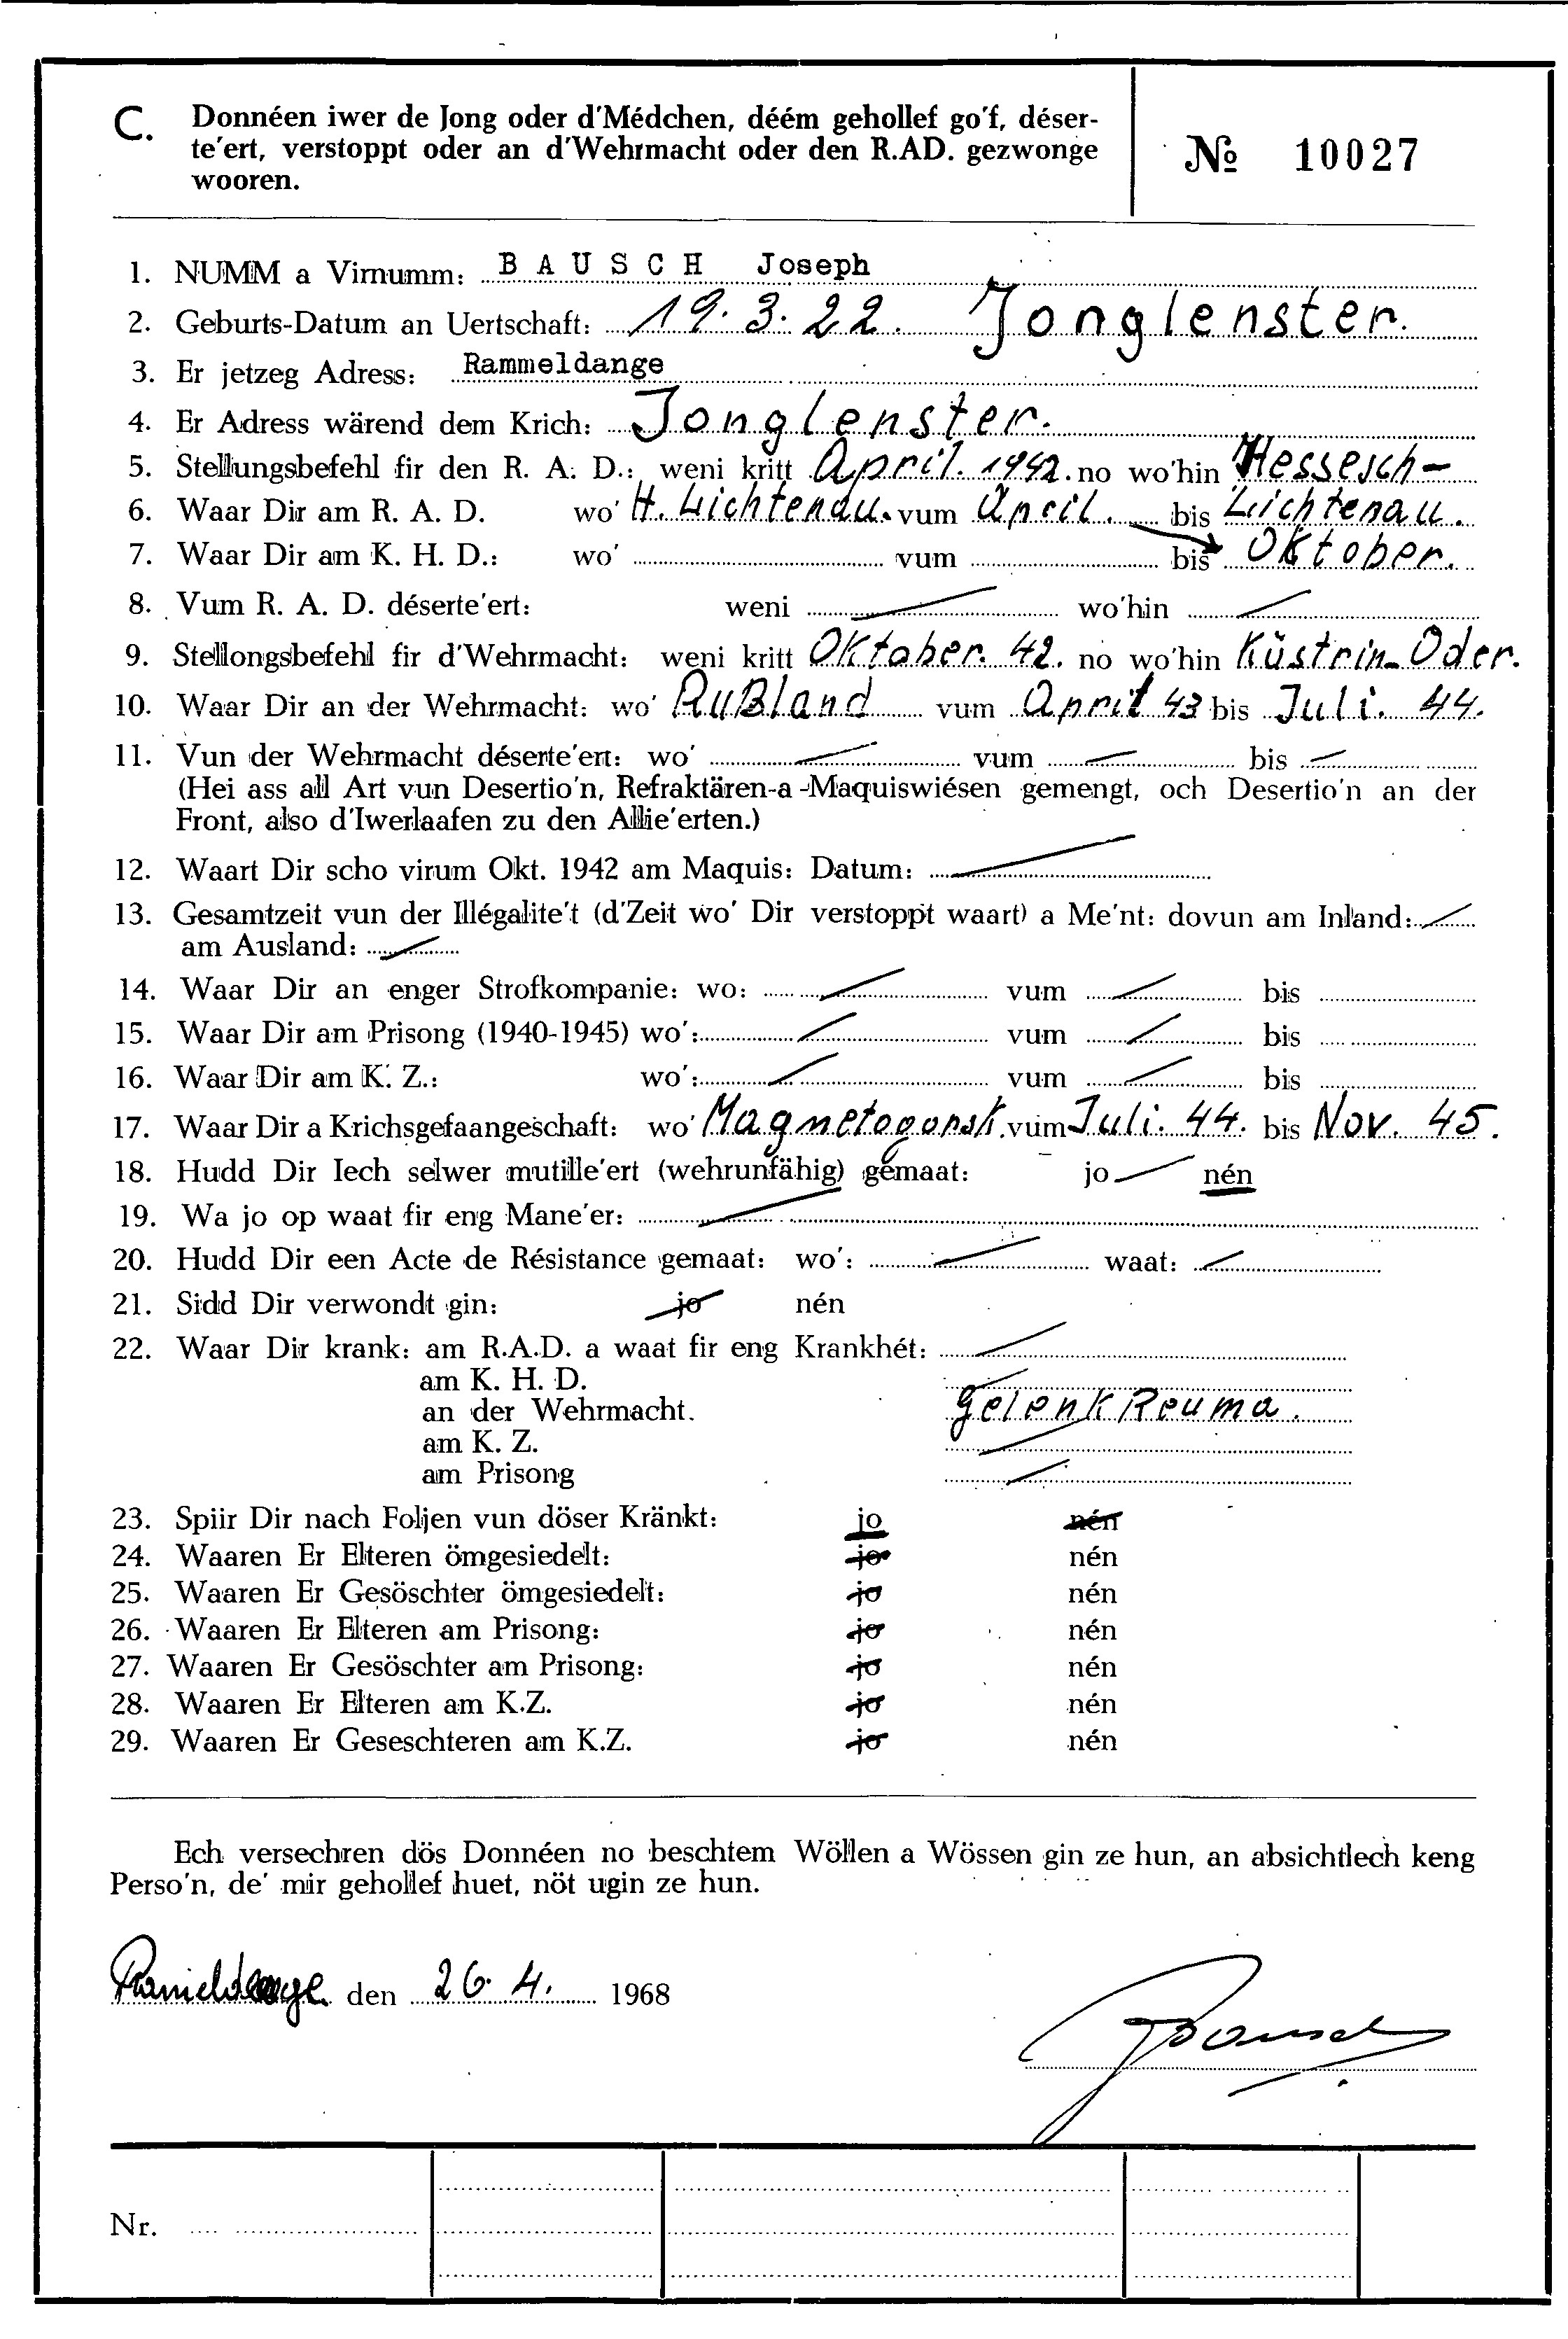 C. Donnéen iwer de Jong oder d'Médchen, déém gehollef go'f, déser-
te'ert, verstoppt oder an d'Wehrmacht oder den R.AD. gezwonge
wooren.
№ 10027
1. NUMM a Virnumm: BAUSCH Joseph
2. Geburts-Datum an Uertschaft: 19.3.22. Jonglenster.
3. Er jetzeg Adress: Rammeldange
4. Er Adress wärend dem Krich: Jonglenster.
5. Stellungsbefehl fir den R. A. D.: weni kritt April. 1942. no wo'hin Hessesch-
6. Waar Dir am R. A. D. wo' H. Lichtenau. vum April. bis Lichtenau.
7. Waar Dir am K. H. D.: wo' vum bis Oktober.
8. Vum R. A. D. déserte'ert: weni wo'hin
9. Stellongsbefehl fir d'Wehrmacht: weni kritt Oktober. 42. no wo'hin Küstrin-Oder.
10. Waar Dir an der Wehrmacht: wo' Rußland vum April 43 bis Juli. 44.
11. Vun der Wehrmacht déserte'ert: wo' vum bis
(Hei ass all Art vun Desertio'n, Refraktären-a-Maquiswiésen gemengt, och Desertio'n an der
Front, also d'Iwerlaafen zu den Allie'erten.)
12. Waart Dir scho virum Okt. 1942 am Maquis: Datum:
13. Gesamtzeit vun der Illégalite't (d'Zeit wo' Dir verstoppt waart) a Me'nt: dovun am Inland:
am Ausland:
14. Waar Dir an enger Strofkompanie: wo: vum bis
15. Waar Dir am Prisong (1940-1945) wo': vum bis
16. Waar Dir am K. Z.: wo': vum bis
17. Waar Dir a Krichsgefaangeschaft: wo' Magnetogorsk. vum Juli. 44. bis Nov. 45.
18. Hudd Dir Iech selwer mutille'ert (wehrunfähig) gemaat: jo nén
19. Wa jo op waat fir eng Mane'er:
20. Hudd Dir een Acte de Résistance gemaat: wo': waat:
21. Sidd Dir verwondt gin: jo nén
22. Waar Dir krank: am R.A.D. a waat fir eng Krankhét:
am K. H. D.
an der Wehrmacht. Gelenk Reuma.
am K. Z.
am Prisong
23. Spiir Dir nach Foljen vun döser Kränkt: jo nén
24. Waaren Er Elteren ömgesiedelt: jo nén
25. Waaren Er Gesöschter ömgesiedelt: jo nén
26. Waaren Er Elteren am Prisong: jo nén
27. Waaren Er Gesöschter am Prisong: jo nén
28. Waaren Er Elteren am K.Z. jo nén
29. Waaren Er Geseschteren am K.Z. jo nén
Ech versechren dös Donnéen no beschtem Wöllen a Wössen gin ze hun, an absichtlech keng
Perso'n, de' mir gehollef huet, nöt ugin ze hun.
den 26. 4. 1968
Bausch
Nr.